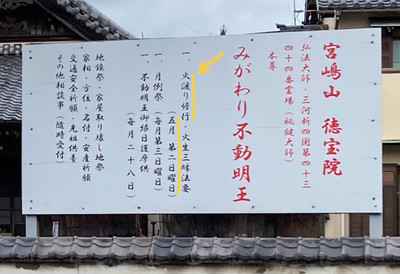 宮嶋山 徳宝院
弘法大師・三河新四国第四十三
四十四番霊場(祕鍵大師)
本尊
みがわり不動明王
一 火渡り修行・火生三昧法要
(五月 第二日曜日)
一 月例祭(毎月第三日曜日)
一 不動明王御縁日護摩供
(毎月二十八日)
地鎮祭・家屋取り壊し地祭
家相・方位・名付・安産祈願
交通安全祈願・先祖供養
その他相談事(随時受付)